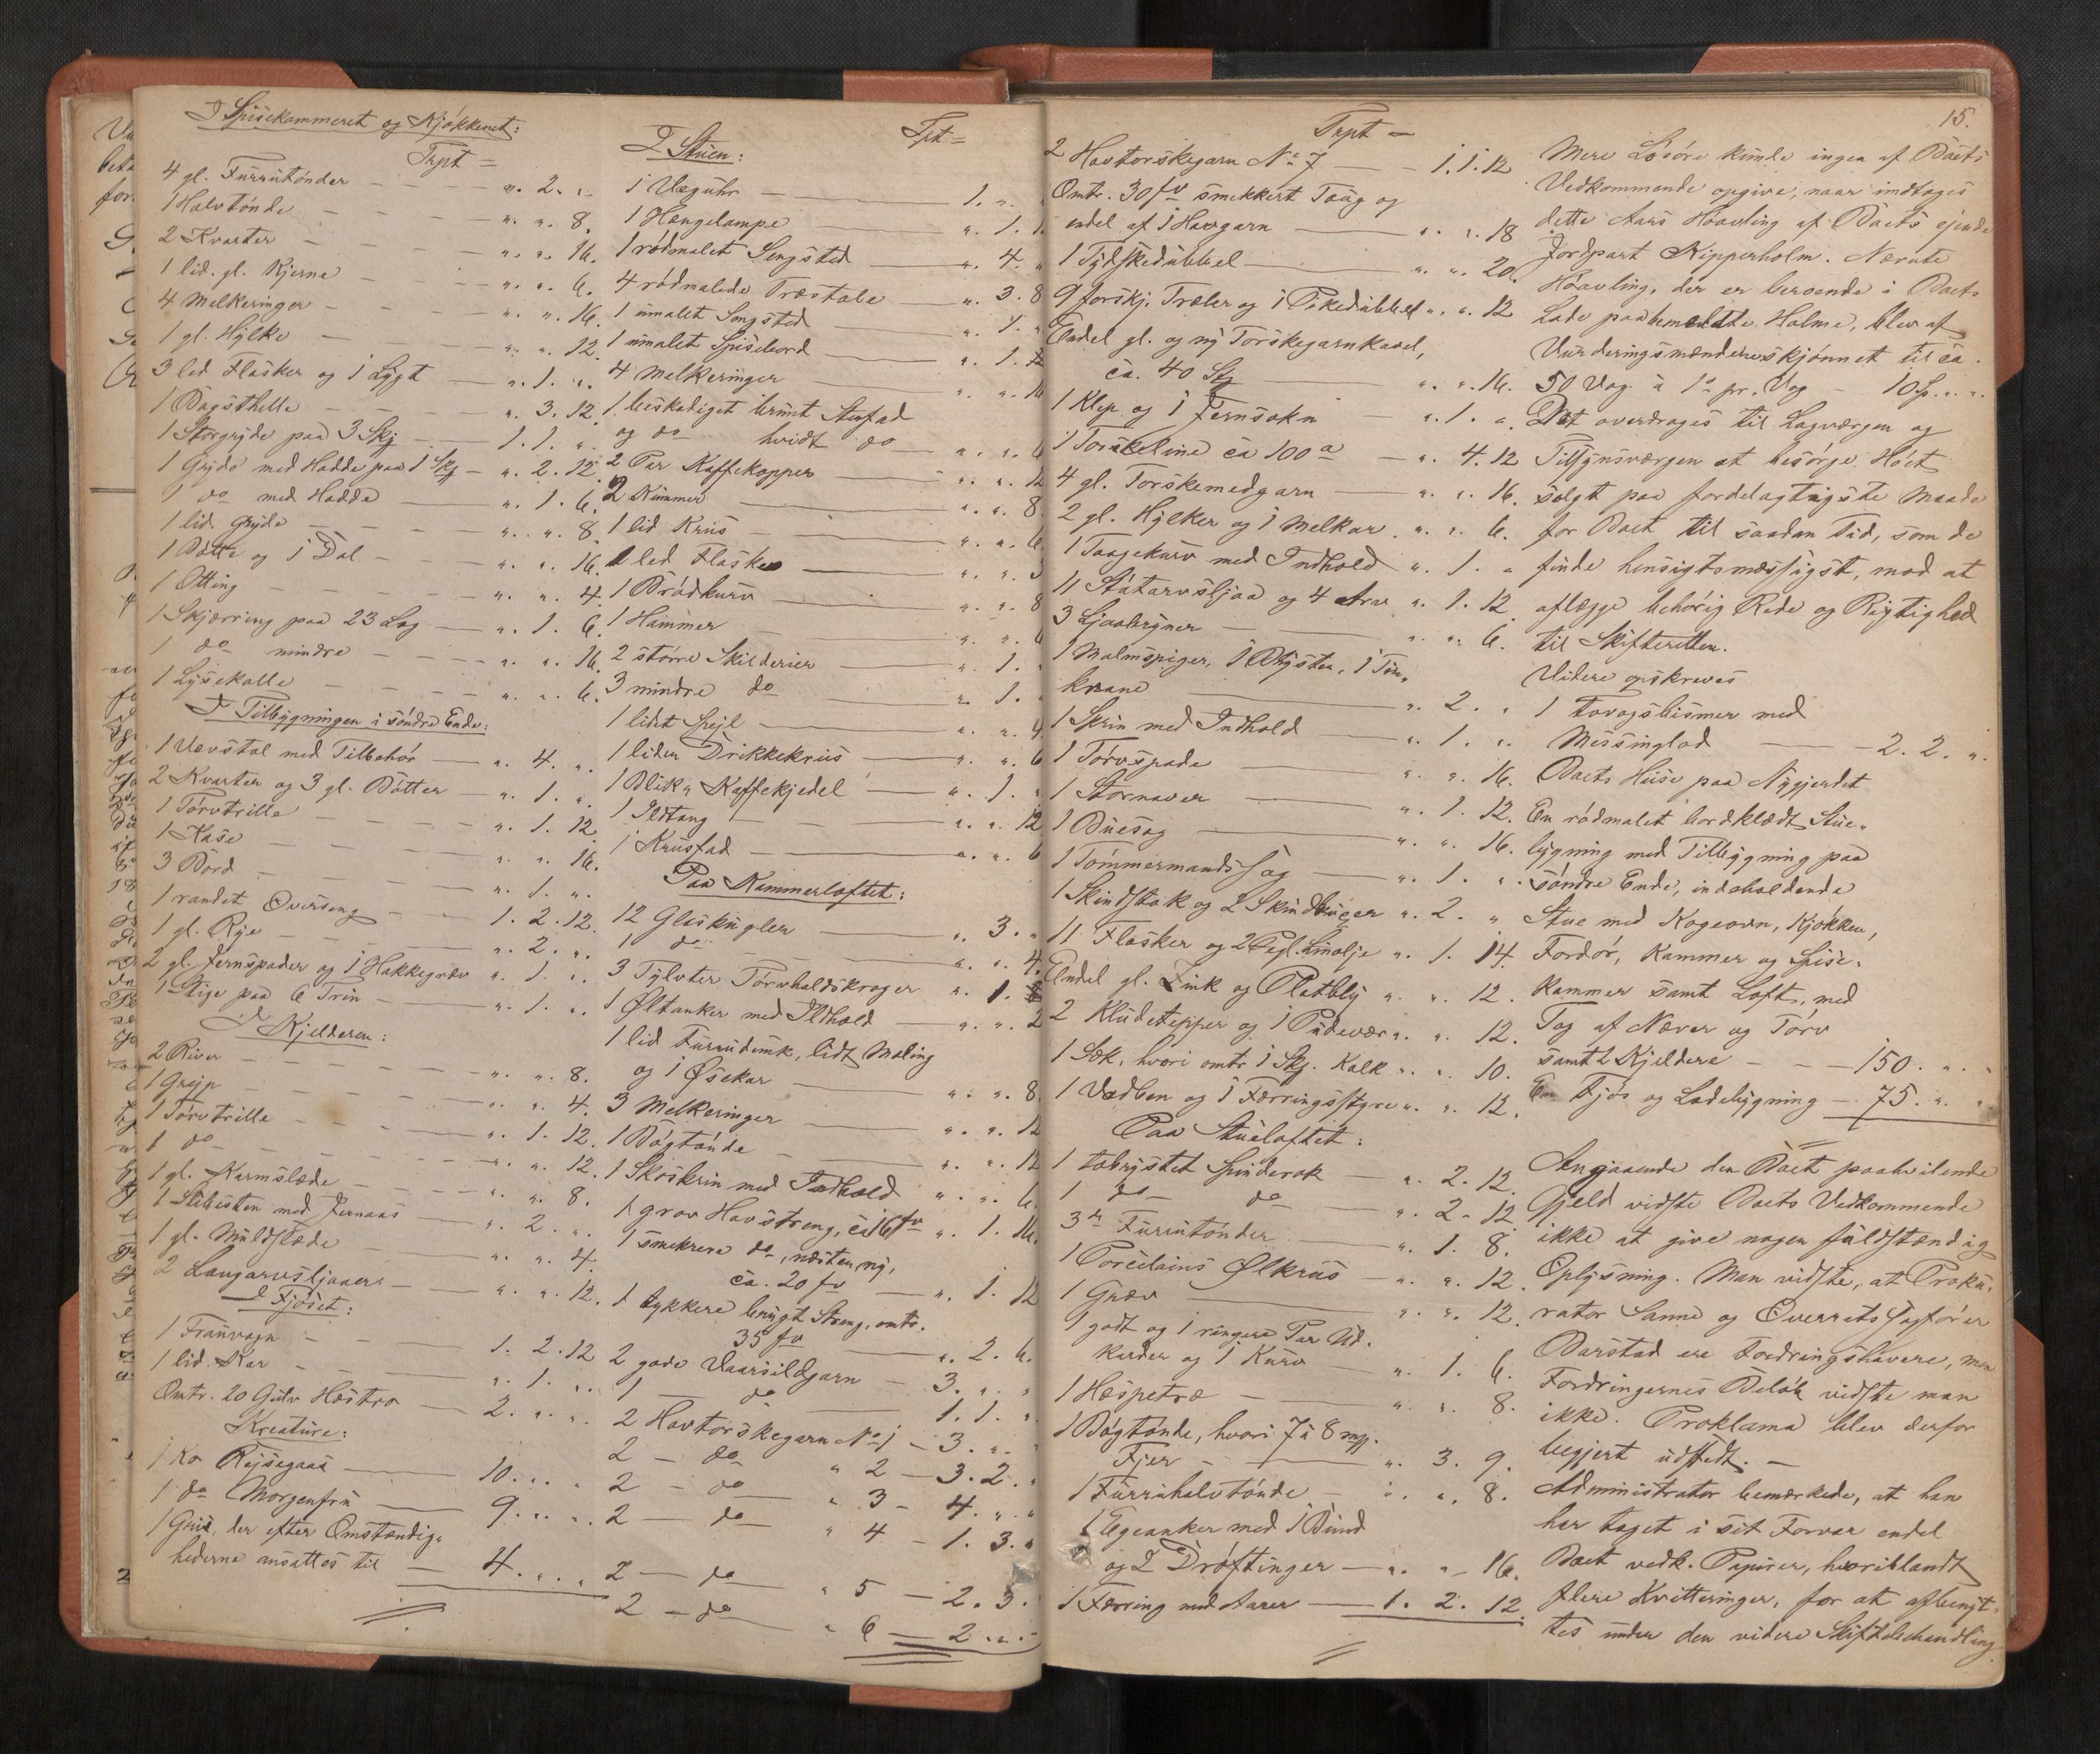 I Spisekammeret og Kjøkkenet:
Trpt =
4 gl. Furrutønder - - - „. 2. „.
1 Halvtønde - - - „. „. 8.
2 Kvarter - - - „. „. 16.
1 lid. gl. Kjerne - - - „. „. 6.
4 Melkeringer - - - „. „. 16.
1 gl. Hylke - - „. „. 12.
3 led Flasker og 1 Lygt - „. 1. „.
1 Bagsthelle - - - „. 3. 12.
1 Storgryde paa 3 Skj - 1. 1. „.
1 Gryde med Hadde paa 1 Skj - „. 2. 12.
1 do med Hadde - „. 1. 6.
1 lid. Gryde - - - „. „. 8.
1 Bøtte og 1 Dal - - „. „. 16.
1 Otting - - - „. „. 4.
1 Skjærring paa 23 Log - „. 1. 6.
1 do mindre - - - „. „. 16.
1 Lysekolle - - - „. „. 6.
I Tilbygningen i søndre Ende:
1 Vævstol med Tilbehør - „. 4. „.
2 Kvarter og 3 gl. Bøtter - „. 1. „.
1 Tørvtrille - - - „. 1. 12.
1 Kase - - - „. „. 16.
3 Bord - - - „. 1. „.
1 randet Overseng - - 1. 2. 12.
1 gl. Rye - - - „. 2. „.
2 gl. Jernspader og 1 Hakkegræv „. 1. „.
1 Stige paa 6 Trin - - „. 1. „.
I Kjelderen:
2 River - - - „. „. 8.
1 Greip - - - „. „. 4.
1 Tørvtrille - - - „. 1. 12.
1 do - - - „. „. 12.
1 gl. Karmslæde - - - „. „. 8.
1 Slibesten med Jernaas - „. 2. „.
1 gl. Muldslæde - - „. „. 4.
2 Langarvsljaaer - - „. „. 12.
I Fjøset:
1 Franvogn - - - 1. 2. 12
1 lid. Kar - - „. 1. „.
Omtr. 20 Gulv Hestro - 2. „. „.
Kreature:
1 Ko Rejsegaas - 10. „. „.
1 do Morgenfru - 9. „. „.
1 Gris, der efter Omstændig„
hederne ansattes til - 4. „. „.
I Stuen:
Tpt =
1 Væguhr - 1. „.
1 Hængelampe „. 1.
1 rødmalet Sengsted - „. 4. „
4 rødmalede Træstole - „. 3. 8
1 umalet Sengsted - „. 1. „
1 umalet Spisebord - „. 1.
4 Melkeringer - „. „. 16
1 beskadiget brunt Stenfad
og do hvidt do - „. „. 6
2 Par Kaffekopper - „. „. 12
2 Kummer - „. „. 8
1 lid Krus - „. „. 6
1 led Flaske - „. „. 3
1 Brødkurv - „. „. 8
1 Hammer - „. „. 6
2 større Skilderier - „. 1. „
3 mindre do - „. 1. „
1 lidet Spejl - „. „. 4
1 liden Drikkekrus - „. „. 6
1 Blik„ Kaffekjedel - „. 1. „
1 Ildtang - „. „. 12
1 Krusfad - „. „. 6
Paa Kammerloftet:
12 Glaskugler - „. 3. „
1 do - „. „. 4.
3 Tylvter Tørvholdskroger „. 1.
1 Øltanker med Ildhold - „. „. 2
1 lid Furrudunk, lidt Maling
og 1 Øsekar - „. „. 8.
3 Melkeringer - „. „. 12
1 Bøgtønde - „. „. 12
1 Skoskrin med Indhold „. „. 6.
1 grov Havstreng, ca 16 fv „. 1. 16.
1 smekrere do, næsten ny,
ca. 20 fv - „. 1. 12
1 tykkere benyt Streng, omtr.
35 fv - „. 2. 6.
2 gode Vaarsildgarn - 3. „. „
1 - do - 1. 1. „
2 Havtorskegarn No 1 - 3. „. „
2 - do „ 2 - 3. 2. „
2 - do „ 3 - 4. „. „
2 - do „ 4 - 1. 3. „
2 - do „ 5 - 2. 3.
2 - do „ 6 - 2 „. „.
15.
Trpt =
2 Havtorskegarn No 7 - 1. 1. 12
Omtr. 30 fv smekkert Toug og
endel af 1 Havgarn - „. „. 18
1 Tydskedubbel - „. „. 20
9 forskj. Træler og 1 Pikedubbel „. „. 12
Endel gl. og ny Torskegarnkavl,
ca. 40 Stk - „. „. 16.
1 Klep og 1 Jernsokn „. 1. „.
1 Torskeline ca 100 a - „. 4. 12
4 gl. Torskemedgarn - „. „. 16.
2 gl. Hylker og 1 Melkar „. „. 6.
1 Taagekurv med Indhold „. 1. „
11 Statarvsljaa og 4 Arve „. 1. 12
3 Ljaabryner - „. „. 6.
1 Malmspiger, 1 Østen, 1 Tin„
krane - „. 2. „
1 Skrin med Indhold - „. 1. „.
1 Tørvspade - „. „. 16.
1 Stornaver - „. 1. 12.
1 Buesag - „. „. 16.
1 Tømmermandssag - „. 1. „.
1 Skindstak og 2 Skindbuxer „. 2. „
11 Flasker og 2 Pegl. Linolje „. 1. 14.
Endel gl. Zink og Platbly „. „. 12.
2 Kludetepper og 1 Pudevær „. „. 12.
1 Sæk, hvori omtr. 1 Skj. Kalk „. „. 10.
1 Vadben og 1 Færringsstyre „. „. 12.
Paa Stueloftet:
1 tobrystet Spinderok - „. 2. 12.
1 do do - „. 2 - 12
3 Furrutønder - „. 1. 8.
1 Porcelains Ølkrus - „. „. 12.
1 Græv - „. „. 12.
1 godt og 1 ringere Par Uld„
karder og 1 Kurv - „. 1. 6.
1 Hespetræ - „. „. 8.
1 Bøgtønde, hvori 7 à 8 mp.
Fjer - „. 3. 9.
1 Furruhalvtønde - „. „. 8.
1 Egeanker med 1 Bund
og 2 Drøftinger - „. „. 16.
1 Færring med Aarer - 1. 2. 12.
Mere Løsøre kunde ingen af Boets
Vedkommende opgive, naar indtages
dette Aars Høavling af Boets ejende
Jordpart Kipperholm. Nævnte
Høavling, der er beroende i Boets
Lade paa bemeldte Holme, blev af
Vurderingsmændene skjønnet til ca.
50 Vog à 1o pr. Vog - 10 Sp. „. „.
Det overdroges til Lagværgen og
Tilsynsværgen at besørge Høet
solgt paa fordelagtigste Maade
for Boet til saadan Tid, som de
finde hensigtsmæssigst, mod at
aflægge behørig Rede og Rigtighed
til Skifteretten.
Videre opskreves
1 tovogsbismer med
Messinglod - 2. 2. „.
Boets Huse paa Nygjerdet
En rødmalet bordklædt Stue„
bygning med Tilbygning paa
søndre Ende, indeholdende
Stue med Kogeovn, Kjøkken,
Fordør, Kammer og Spise„
kammer samt Loft, med
Tag af Næver og Tørv
samt 2 Kjeldere - - 150. „. „
En Fjøs og Ladebygning - 75. „. „
Angaaende den Boet paahvilende
Gjeld vidste Boets Vedkommende
ikke at give nogen fuldstændig
Oplysning. Man vidste, at Proku„
rator Sanne og Overretssagfører
Barstad ere Fordringshavere, men
Fordringernes Beløb vidste man
ikke. Proklama blev derfor
begjert udstedt. -
Administrator bemærkede, at han
har taget i sit Forvar endel
Boet vedk. Papirer, hvoriblandt
flere Kvitteringer, for at afbenyt„
tes under den videre Skiftebehandling